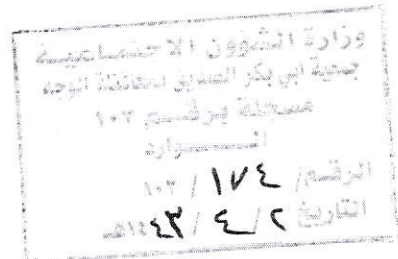 وزارة الشؤون الاجتماعية
جمعية ابي بكر الصديق بمحافظة الوجه
مسجلة برقم ١٠٢
الـــــوارد
الرقم/ ١٧٤ / ١٠٢
التاريخ ٢ / ٤ / ١٤٤٣هـ